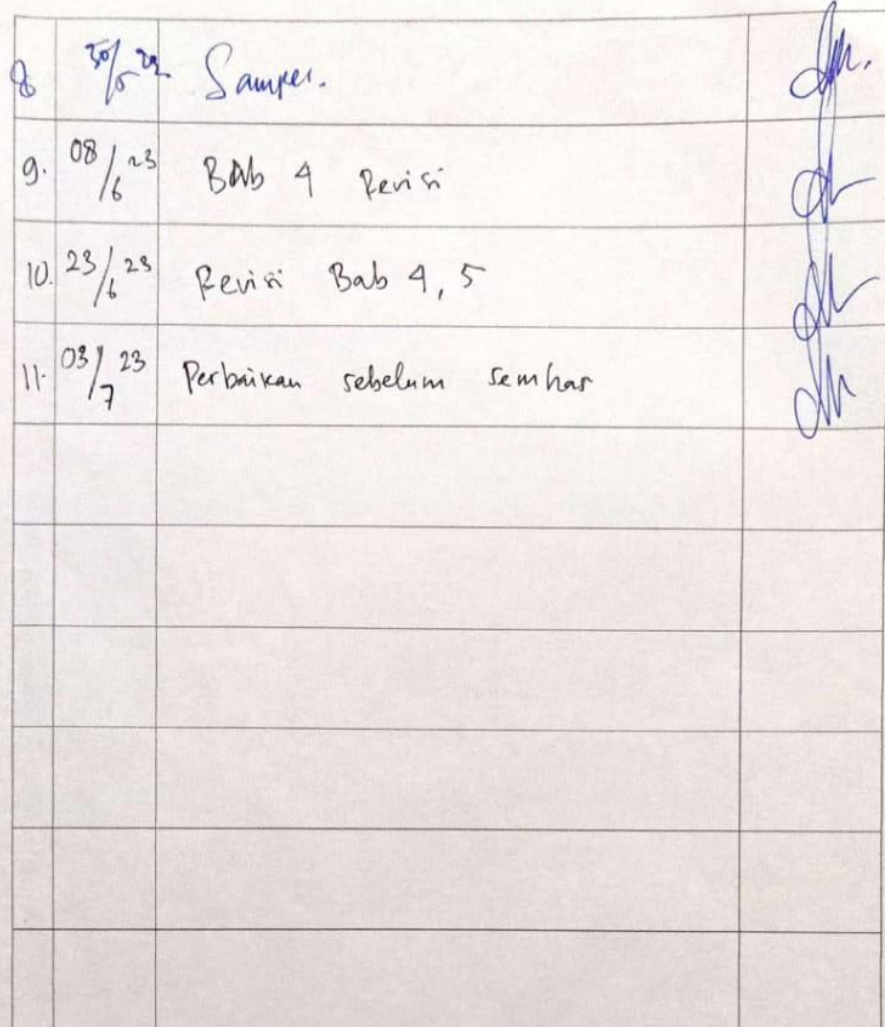 8 30/5 22 Sampel.
9. 08/6 23 BAb 4 Revisi
10. 23/6 23 Revisi Bab 4, 5
11. 03/7 23 Perbaikan sebelum semhas